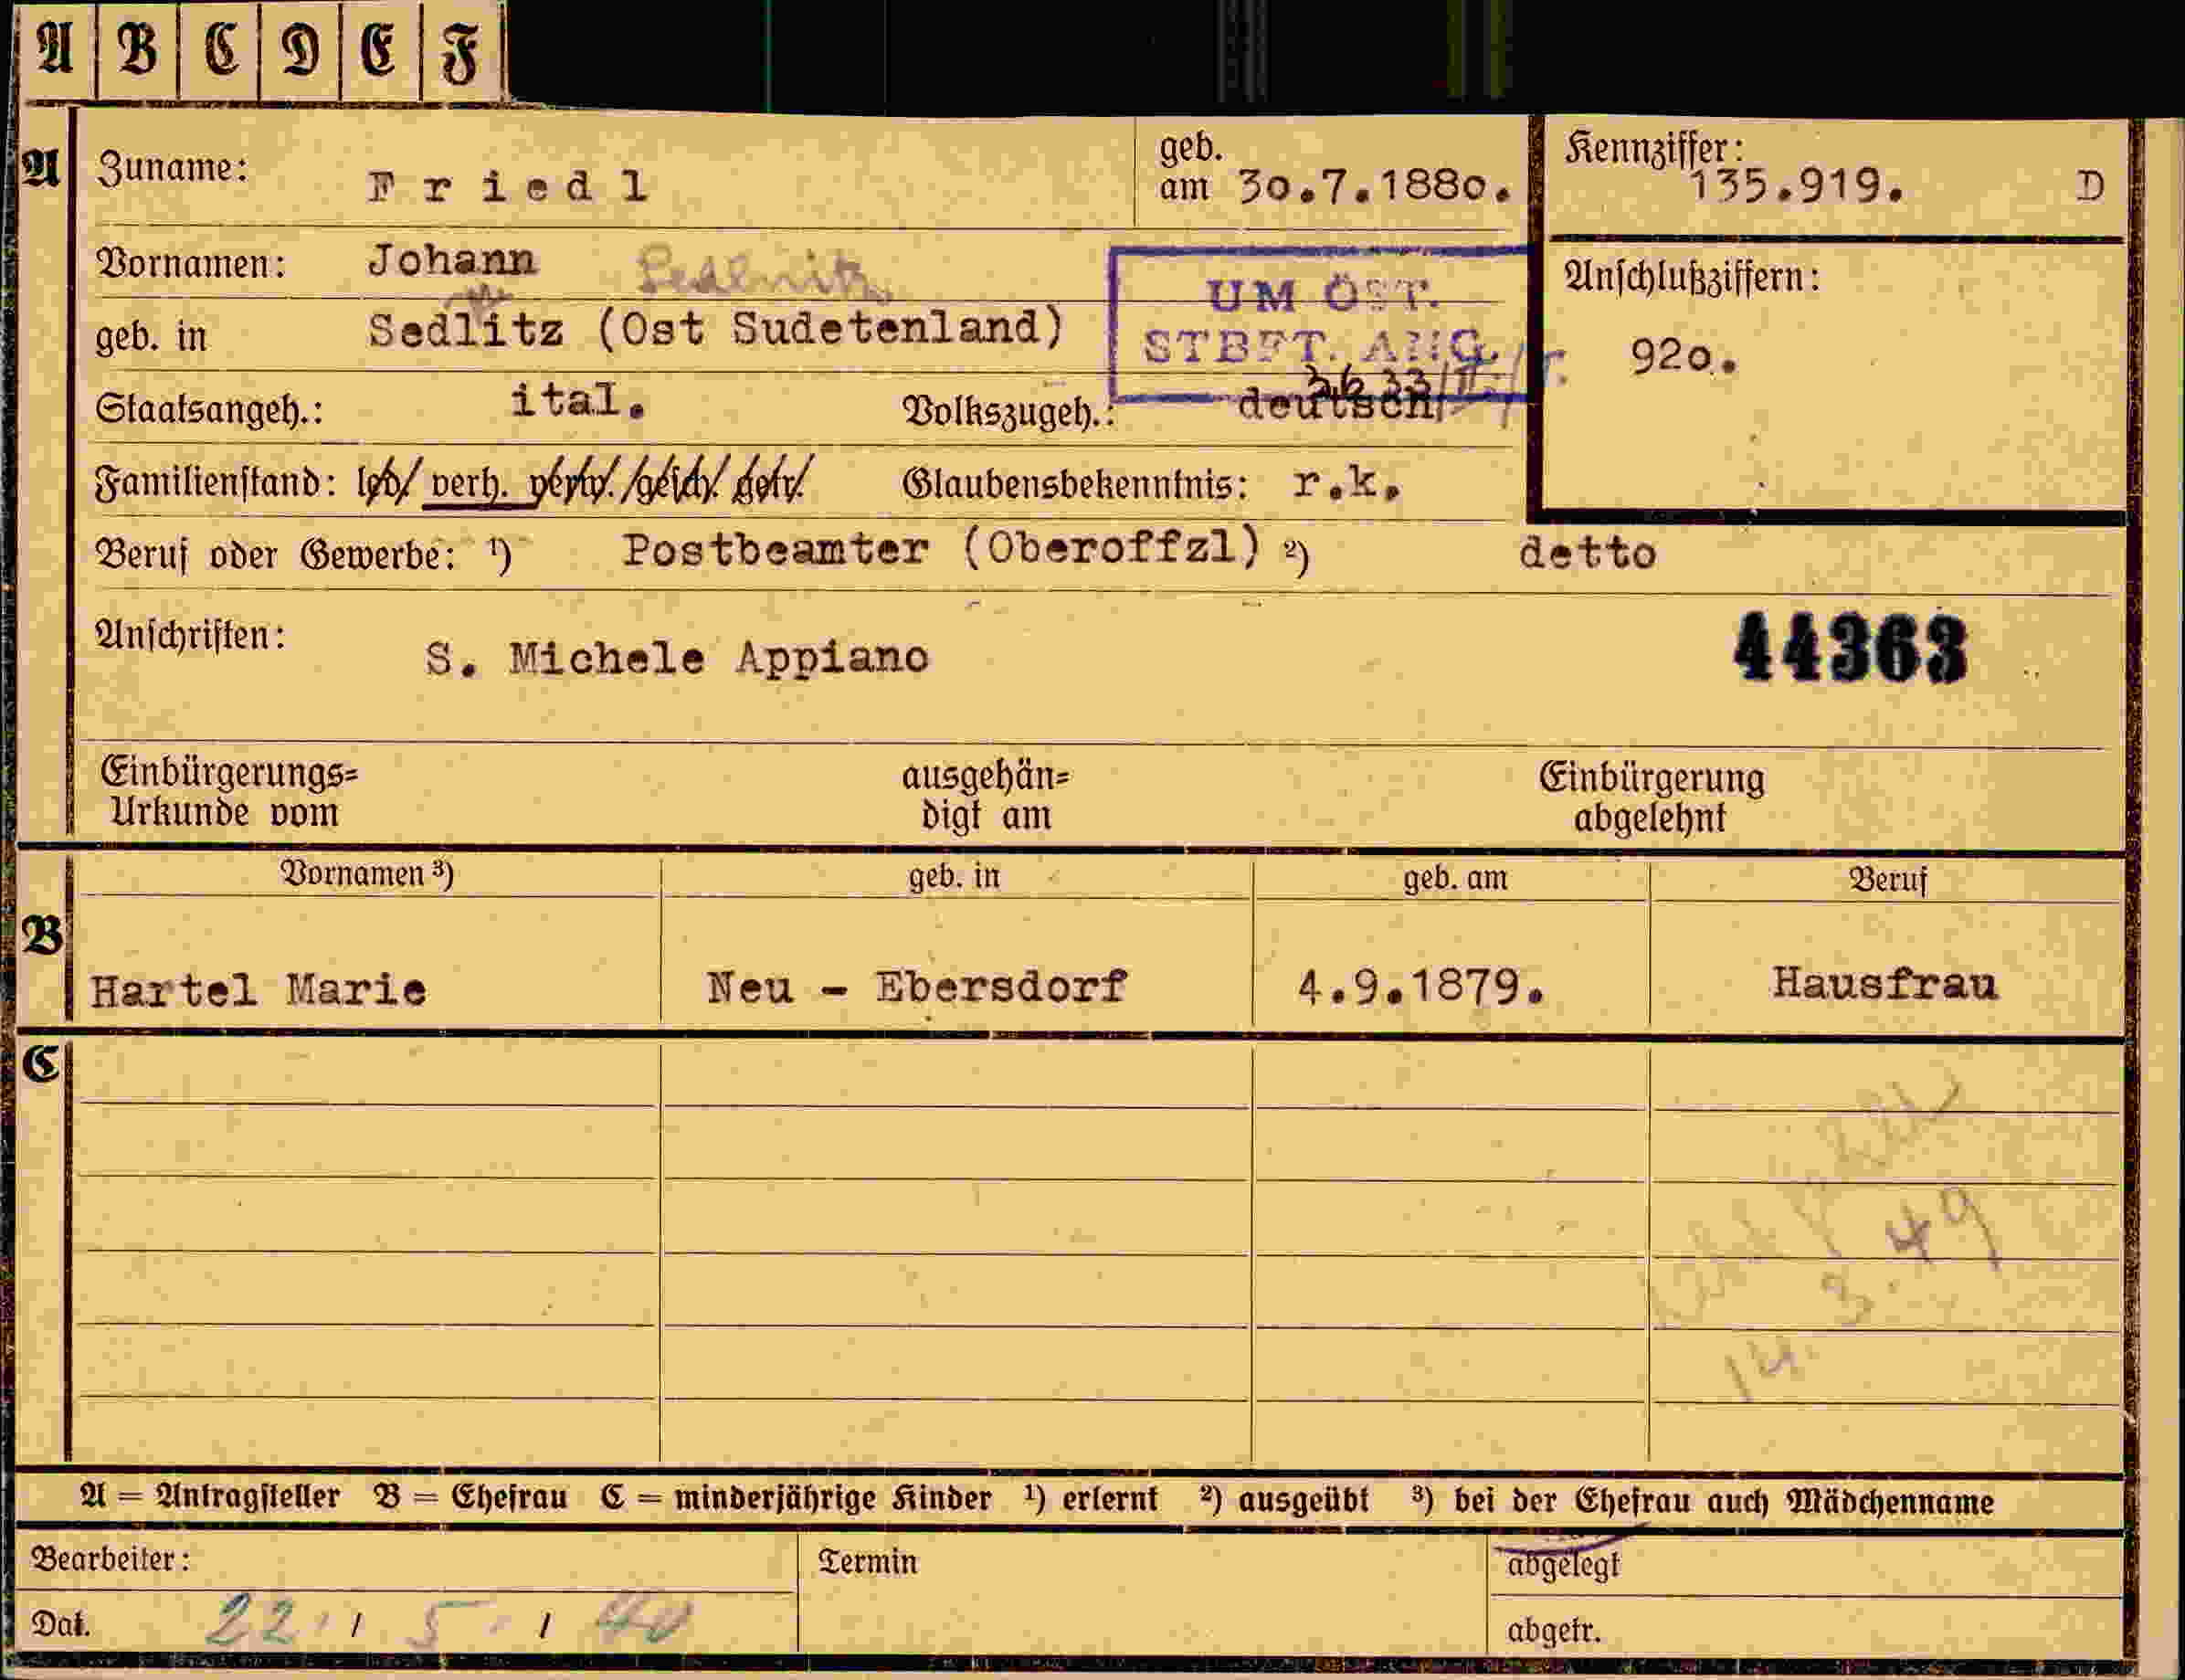 A B C D E F
A Zuname: Friedl geb. am 30.7.1880. Kennziffer: 135.919. D
Vornamen: Johann Sedlnitz
Anschlußziffern: 920.
geb. in Sedlitz (Ost Sudetenland)
UM ÖST.
STBFT. ANG.
Staatsangeh.: ital. Volkszugeh.: deutsch
Familienstand: led/ verh. verw./gesch./getr. Glaubensbekenntnis: r.k.
Beruf oder Gewerbe: ¹) Postbeamter (Oberoffzl) ²) detto
Anschriften: S. Michele Appiano 44363
Einbürgerungs= ausgehän= Einbürgerung
Urkunde vom digt am abgelehnt
Vornamen ³) geb. in geb. am Beruf
B Hartel Marie Neu - Ebersdorf 4.9.1879. Hausfrau
C
14. 3. 49
A = Antragsteller B = Ehefrau C = minderjährige Kinder ¹) erlernt ²) ausgeübt ³) bei der Ehefrau auch Mädchenname
Bearbeiter: Termin abgelegt
Dat. 22. / 5. / 40 abgetr.